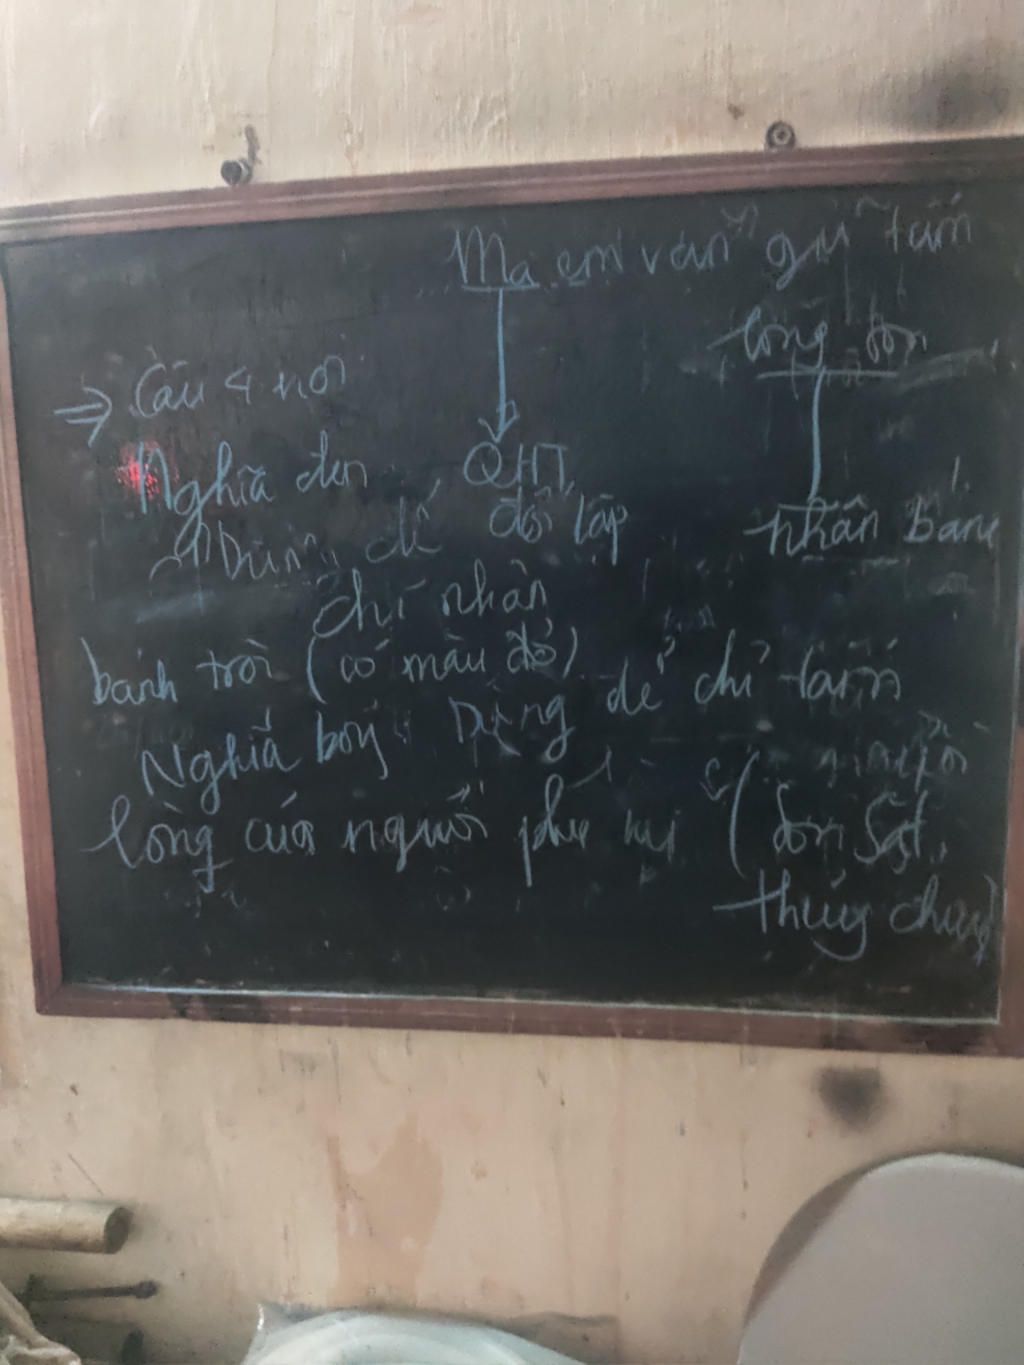 Mà em vẫn giữ tấm
lòng son
=> Câu 4 nói
Nghĩa đen QHT
Dùng để đối lập nhân bánh
chỉ nhân
bánh trôi (có màu đỏ)
Nghĩa bóng: Dùng để chỉ tấm
lòng của người phụ nữ (son sắt,
thủy chung